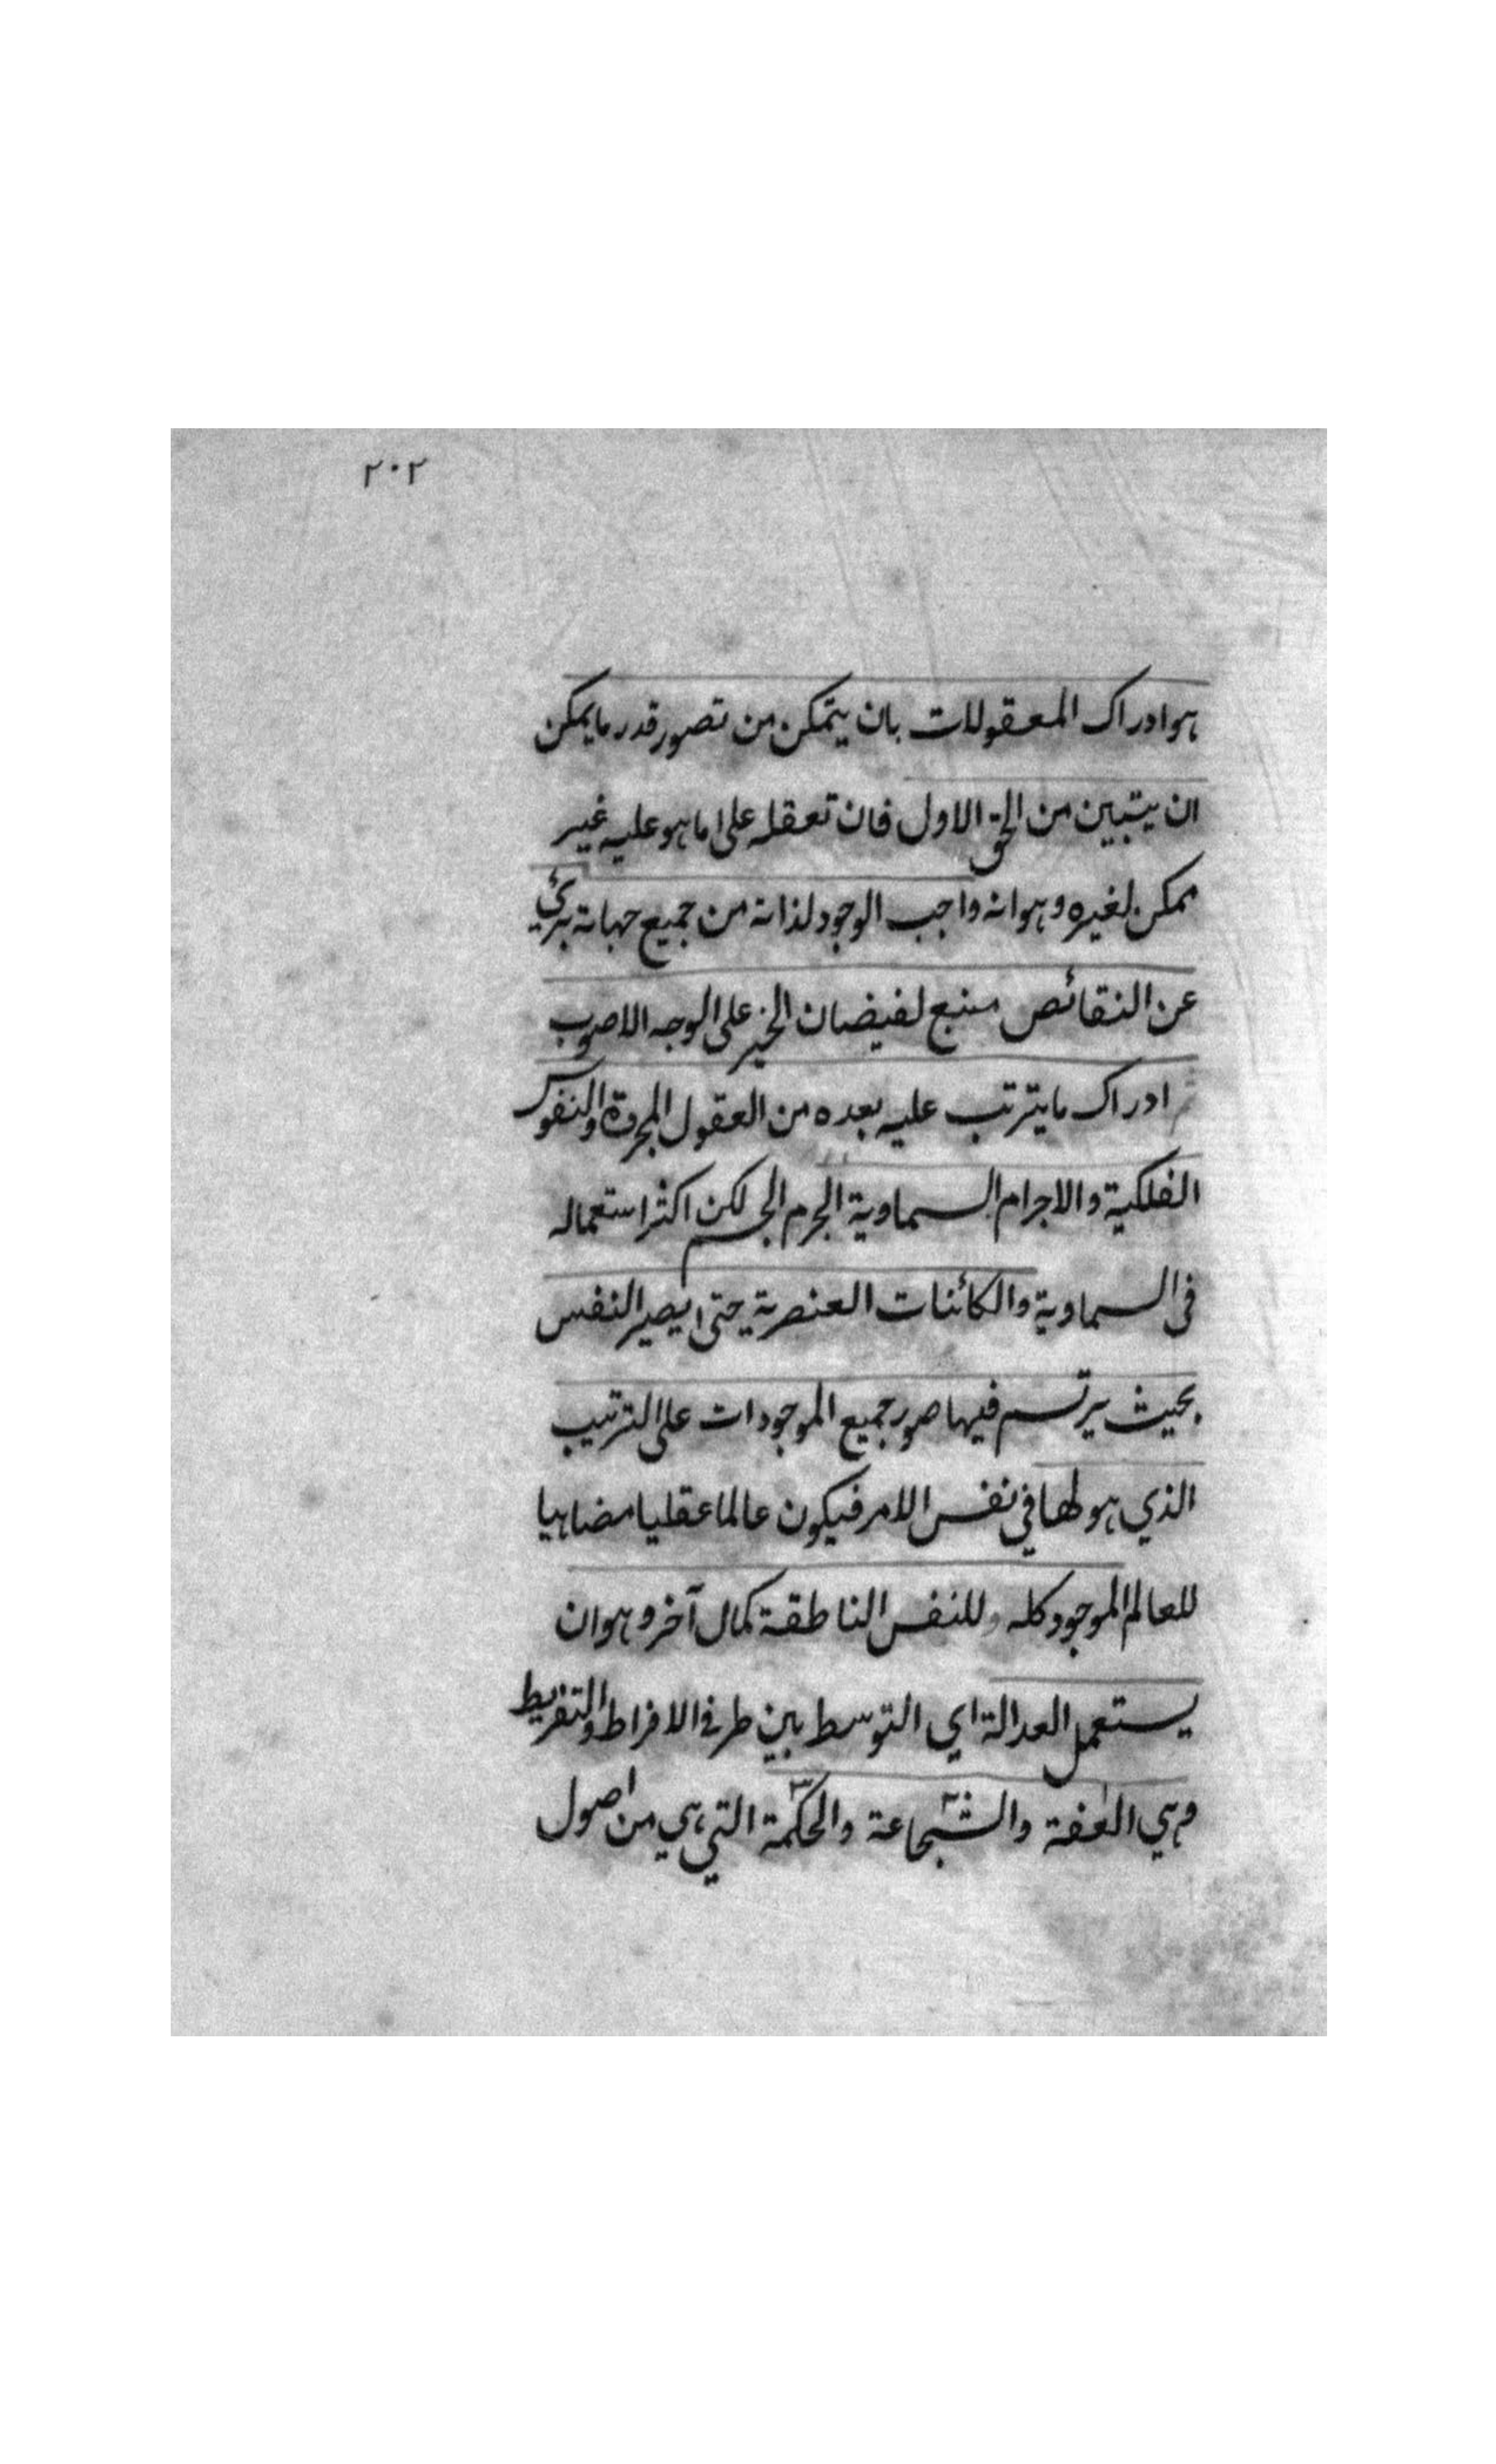 ٢٠٢
هو ادراك المعقولات بان يتمكن من تصور قدر ما يمكن
ان يتبين من الحق الاول فان تعقله على ما هو عليه غير
ممكن لغيره وهو انه واجب الوجود لذاته من جميع جهاته بريئ
عن النقائص منبع لفيضان الخير على الوجه الاصوب
ادراك ما يترتب عليه بعده من العقول المجردة والنفوس
الفلكية والاجرام السماوية الجرم الجسم لكن اكثر استعماله
في السماوية والكائنات العنصرية حتى يصير النفس
بحيث يرتسم فيها صور جميع الموجودات على الترتيب
الذي هو لها في نفس الامر فيكون عالما عقليا مضاهيا
للعالم الموجود كله وللنفس الناطقة كمال آخر وهو ان
يستعمل العدالة اي التوسط بين طرفي الافراط والتفريط
وهي العفة والشجاعة والحكمة التي هي من اصول